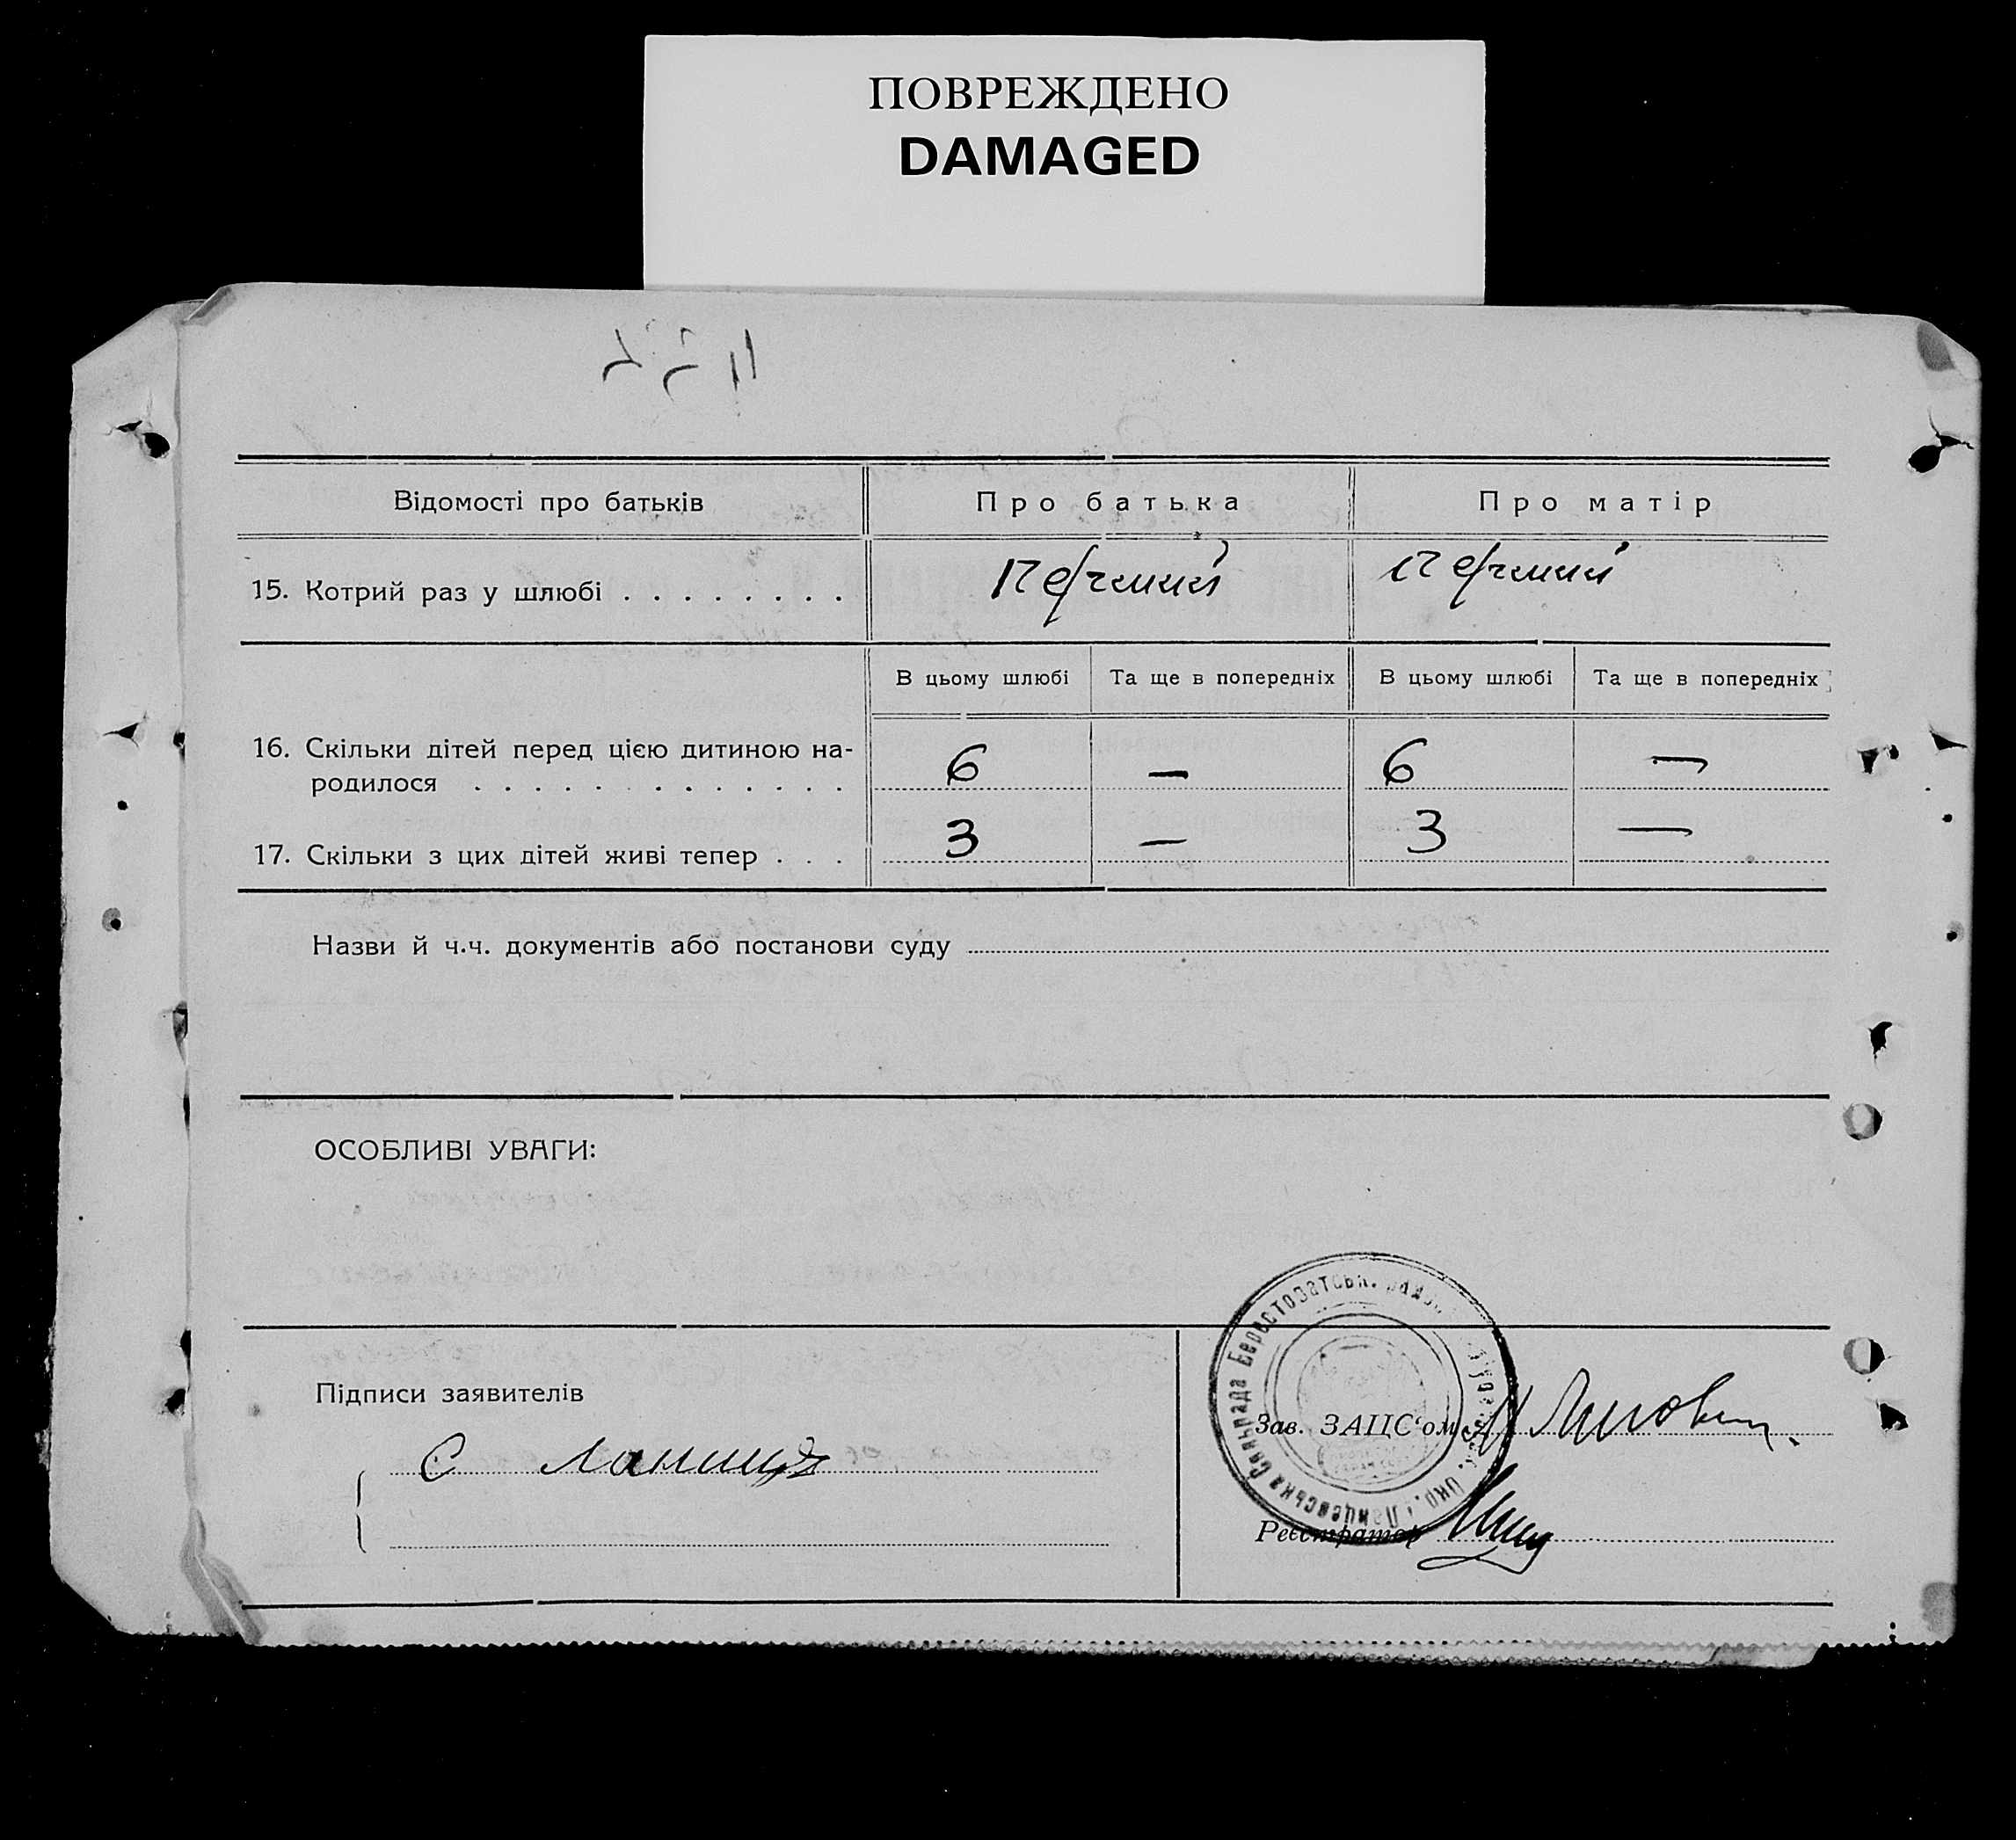 ПОВРЕЖДЕНО
DAMAGED
Відомості про батьків
Про батька
Про матір
15. Котрий раз у шлюбі . . . . . . . .
перший
перший
В цьому шлюбі
Та ще в попередніх
В цьому шлюбі
Та ще в попередніх
16. Скільки дітей перед цією дитиною на-
родилося . . . . . . . . . . . . .
6 — 6 —
17. Скільки з цих дітей живі тепер . . .
3 — 3 —
Назви й ч.ч. документів або постанови суду
ОСОБЛИВІ УВАГИ:
Підписи заявителів
С
Зав. ЗАЦС'ом
Реєстратор
Сільрада